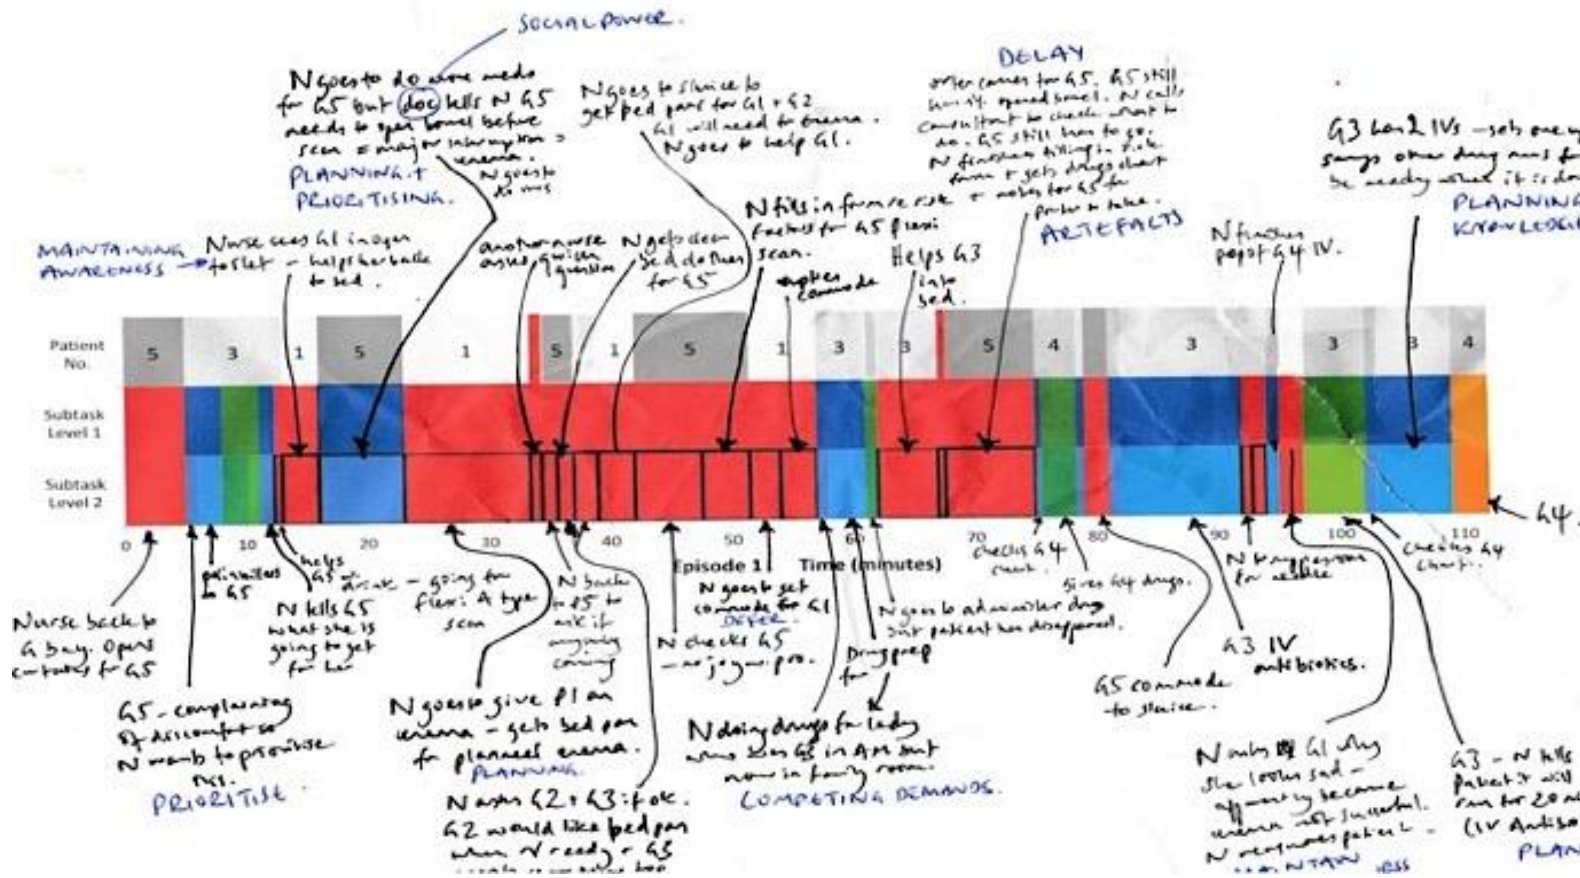 SOCIAL POWER.
N goes to do some meds
for G5 but doc tells N G5
needs to open bowel before
scan = major interruption =
enema.
N goes to
do this
PLANNING +
PRIORITISING.
N goes to sluice to
get bed pans for G1 + G2
G1 will need to
N goes to help G1.
DELAY
comes for G5. G5 still
hasn't opened bowel. N calls
consultant to check what to
do. G5 still has to go.
N finishes filling in risk
form + gets drugs chart
+ notes for G5 for
porter to take.
ARTEFACTS
G3 has 2 IVs - sets one up
says other drug runs for
be nearby when it is done
PLANNING
KNOWLEDGE
MAINTAINING
AWARENESS
Nurse sees G1 in open
toilet - helps her back
to bed.
another nurse
asks quick
question
N gets clean
bed clothes
for G5
N fills in form re risk
factors for G5 flexi
scan.
empties
commode
Helps G3
into
bed.
N finishes
prep of G4 IV.
Patient
No.
5 3 1 5 1 5 1 5 1 3 3 5 4 3 3 3 4
Subtask
Level 1
Subtask
Level 2
0 10 20 30 40 50 60 70 80 90 100 110
Episode 1 Time (minutes)
G4.
Nurse back to
G bay. Opens
curtains for G5
painkillers
to G5
helps
G5
drink
N tells G5
what she is
going to get
for her
- going for
flexi. A type
scan
N back
to G5 to
ask if
anything
coming
N goes to get
commode for G1
DEFER.
N checks G5
- no joy
Drug prep
for
N goes to administer drug
but patient has disappeared.
checks G4
chart.
gives G4 drugs.
G5 commode
to sluice.
G3 IV
antibiotics.
N to
for needle
checks G4
chart.
G5 - complaining
of discomfort so
N wants to prioritise
this.
PRIORITISE.
N goes to give P1 an
enema - gets bed pan
for planned enema.
PLANNING.
N asks G2 + G3 if ok.
G2 would like bed pan
when N ready + G3
N doing drugs for lady
who was G5 in AM but
now in family room.
COMPETING DEMANDS.
N asks G1 why
she looks sad -
apparently because
enema not successful.
N reassures patient -
MAINTAIN
G3 - N tells
patient it will
run for 20
(IV
PLAN